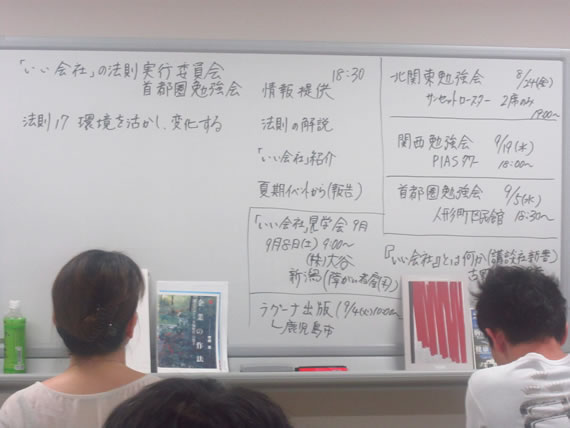 「いい会社」の法則実行委員会
首都圏勉強会
法則17 環境を活かし、変化する
18:30
情報提供
法則の解説
「いい会社」紹介
夏期イベントから(報告)
「いい会社」見学会 9月
9月8日(土) 9:00〜
(株)大谷
新潟(障がい者雇用)
ラグーナ出版(9/4(火)10:00〜
鹿児島市
北関東勉強会 8/24(金)
サンセットロースター 2席のみ
19:00〜
関西勉強会 9/19(水)
PIAS 18:00〜
首都圏勉強会 9/5(水)
人形町区民館 18:30〜
『「いい会社」とは何か』(講談社新書)
の作法